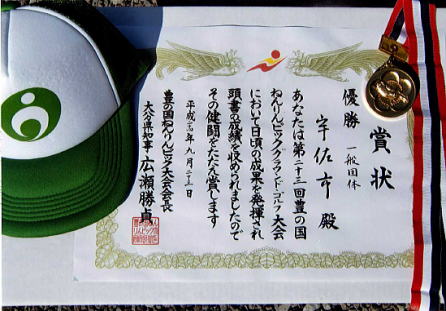 賞状
優勝 一般団体
宇佐市殿
あなたは第二十三回豊の国
ねんりんピックグラウンド・ゴルフ大会
において日頃の成果を発揮され
頭書の成績を収められましたので
その健闘をたたえ賞します
平成二十三年九月二十三日
豊の国ねんりんピック大会会長
大分県知事 広瀬勝貞